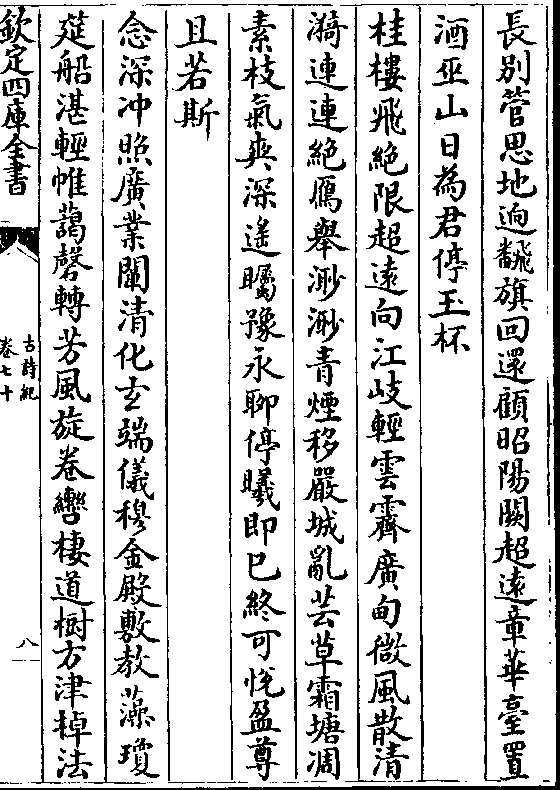 長別管思地逈飜旗回還顧昭陽闕超遠章華臺置
酒巫山日為君停玉杯
桂樓飛絶限超遠向江岐輕雲霽廣甸微風散清
漪連連絶鴈舉渺渺青煙移嚴城亂芸草霜塘凋
素枝氣爽深遙矚豫永聊停曦即已終可悅盈尊
且若斯
念深冲照廣業闡清化玄端儀穆金殿敷教藻瓊
筵船湛輕帷藹磬轉芳風旋卷轡棲道樹方津棹法
欽定四庫全書
古詩紀
卷七十
八